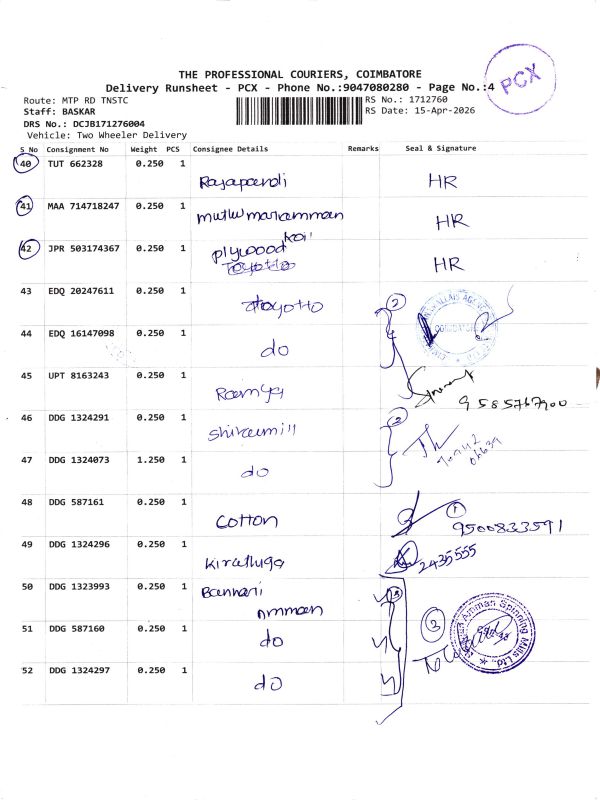 PCX
THE PROFESSIONAL COURIERS, COIMBATORE
Delivery Runsheet - PCX - Phone No.:9047080280 - Page No.:4
Route: MTP RD TNSTC
RS No.: 1712760
Staff: BASKAR
RS Date: 15-Apr-2026
DRS No.: DCJB171276004
Vehicle: Two Wheeler Delivery
S No Consignment No Weight PCS Consignee Details Remarks Seal & Signature
40 TUT 662328 0.250 1 Rajapandi HR
41 MAA 714718247 0.250 1 muthumariamman koil HR
42 JPR 503174367 0.250 1 plywood HR
43 EDQ 20247611 0.250 1 Hoyotto 2
44 EDQ 16147098 0.250 1 do
45 UPT 8163243 0.250 1 Ramya 9585767900
46 DDG 1324291 0.250 1 2
47 DDG 1324073 1.250 1 do
48 DDG 587161 0.250 1 cotton 1 9500833591
49 DDG 1324296 0.250 1 2435555
50 DDG 1323993 0.250 1 Bannari Amman 3
51 DDG 587160 0.250 1 do 3
Amman Spinning Mills Ltd.,
52 DDG 1324297 0.250 1 do